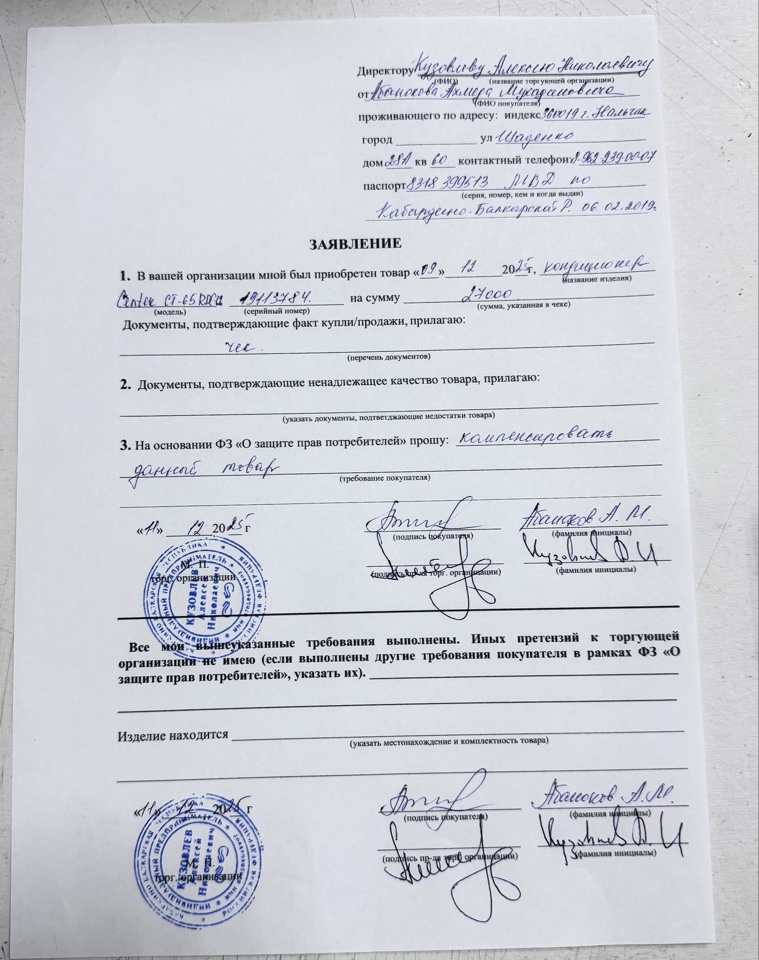 Директору Кузовлеву Алексею Николаевичу
(ФИО) (название торгующей организации)
от Абанокова Ахмеда Мухадиновича
(ФИО покупателя)
проживающего по адресу: индекс 360019 г. Нальчик
город ____________ ул Шаденко
дом 28А кв 60 контактный телефон 8 962 239-00-07
паспорт 8318 399513 МВД по
(серия, номер, кем и когда выдан)
Кабардино-Балкарской Р. 06.02.2019г
ЗАЯВЛЕНИЕ
1. В вашей организации мной был приобретен товар «09» 12 2025г, кондиционер
(название изделия)
Centek CT-65 19113784. на сумму 27000
(модель) (серийный номер) (сумма, указанная в чеке)
Документы, подтверждающие факт купли/продажи, прилагаю:
чек.
(перечень документов)
2. Документы, подтверждающие ненадлежащее качество товара, прилагаю:
(указать документы, подтветджающие недостатки товара)
3. На основании ФЗ «О защите прав потребителей» прошу: компенсировать
данный товар
(требование покупателя)
«11» 12 2025 г Абаноков А. М.
(подпись покупателя) (фамилия инициалы)
М. П. Кузовлев А. Н
торг. организации (подпись пр-да торг. организации) (фамилия инициалы)
КУЗОВЛЕВ
Алексей
Николаевич
Все мои вышеуказанные требования выполнены. Иных претензий к торгующей
организации не имею (если выполнены другие требования покупателя в рамках ФЗ «О
защите прав потребителей», указать их).
Изделие находится
(указать местонахождение и комплектность товара)
«11» 12 2025 г Абаноков А.М.
(подпись покупателя) (фамилия инициалы)
Кузовлев А. Н
М. П. (подпись пр-да торг. организации) (фамилия инициалы)
торг. организации
КУЗОВЛЕВ
Алексей
Николаевич